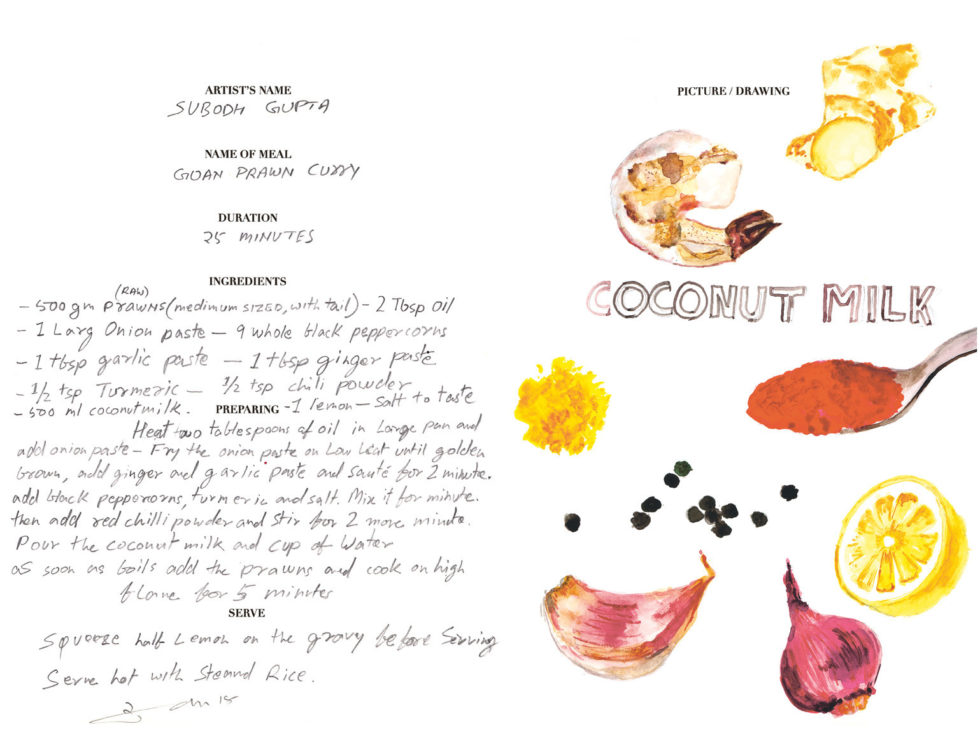 ARTIST'S NAME
SUBODH GUPTA
NAME OF MEAL
GOAN PRAWN CURRY
DURATION
25 MINUTES
INGREDIENTS
(RAW)
- 500 gm PRAWNS (medimum SIZED, with tail) - 2 Tbsp oil
- 1 Larg Onion paste - 9 whole black peppercorns
- 1 tbsp garlic paste - 1 tbsp ginger paste
- 1/2 tsp Turmeric - 1/2 tsp chili powder
- 500 ml coconut milk. PREPARING - 1 lemon - Salt to taste
Heat two tablespoons of oil in Large pan and
add onion paste - Fry the onion paste on Low heat until golden
brown, add ginger and garlic paste and sauté for 2 minute.
add black peppercorns, turmeric and salt. Mix it for minute.
then add red chilli powder and stir for 2 more minute.
Pour the coconut milk and cup of water
as soon as boils add the prawns and cook on high
flame for 5 minutes
SERVE
Squeeze half Lemon on the gravy before Serving
Serve hot with Steamd Rice.
PICTURE / DRAWING
COCONUT MILK